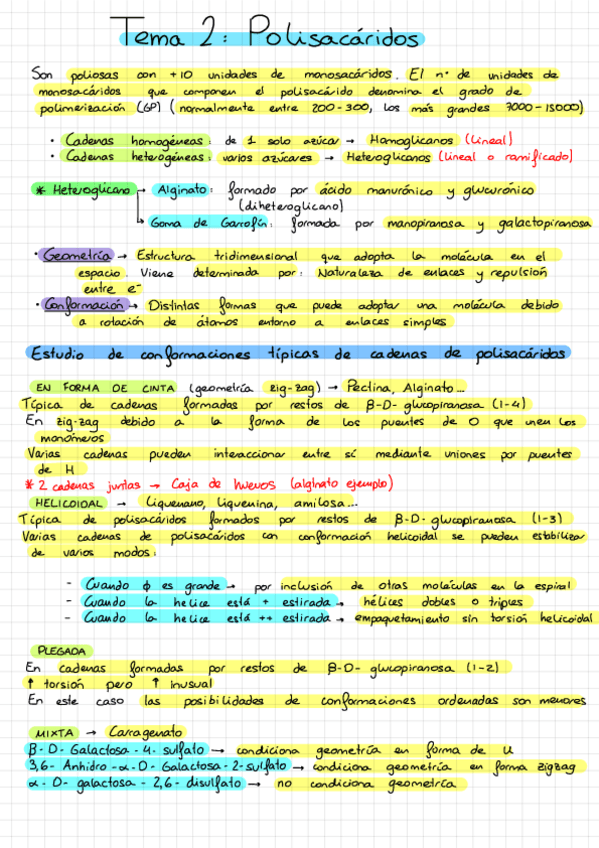 Tema 2: Polisacáridos
Son poliosas con +10 unidades de monosacáridos. El nº de unidades de
monosacáridos que componen el polisacárido denomina el grado de
polimerización (GP) (normalmente entre 200-300, los más grandes 7000-15000)
· Cadenas homogéneas: de 1 solo azúcar → Homoglicanos (Lineal)
· Cadenas heterogéneas: varios azúcares → Heteroglicanos (lineal o ramificado)
* Heteroglicano → Alginato: formado por ácido manurónico y glucurónico
(diheteroglicano)
↳ Goma de Garrofín: formada por manopiranosa y galactopiranosa
· Geometría → Estructura tridimensional que adopta la molécula en el
espacio. Viene determinada por: Naturaleza de enlaces y repulsión
entre e-
· Conformación → Distintas formas que puede adoptar una molécula debido
a rotación de átomos entorno a enlaces simples
Estudio de conformaciones típicas de cadenas de polisacáridos
EN FORMA DE CINTA (geometría zig-zag) → Pectina, Alginato...
Típica de cadenas formadas por restos de β-D-glucopiranosa (1-4)
En zig-zag debido a la forma de los puentes de O que unen los
monómeros
Varias cadenas pueden interaccionar entre sí mediante uniones por puentes
de H
* 2 cadenas juntas → Caja de huevos (alginato ejemplo)
HELICOIDAL → Liquenano, liquenina, amilosa...
Típica de polisacáridos formados por restos de β-D-glucopiranosa (1-3)
Varias cadenas de polisacáridos con conformación helicoidal se pueden estabilizar
de varios modos:
- Cuando ϕ es grande → por inclusión de otras moléculas en la espiral
- Cuando la helice está + estirada → hélices dobles o triples
- Cuando la helice está ++ estirada → empaquetamiento sin torsión helicoidal
PLEGADA
En cadenas formadas por restos de β-D-glucopiranosa (1-2)
↑ torsión pero ↑ inusual
En este caso las posibilidades de conformaciones ordenadas son menores
MIXTA → Carragenato
β-D-Galactosa-4-sulfato → condiciona geometría en forma de U
3,6-Anhidro-α-D-Galactosa-2-sulfato → condiciona geometría en forma zigzag
α-D-galactosa-2,6-disulfato → no condiciona geometría